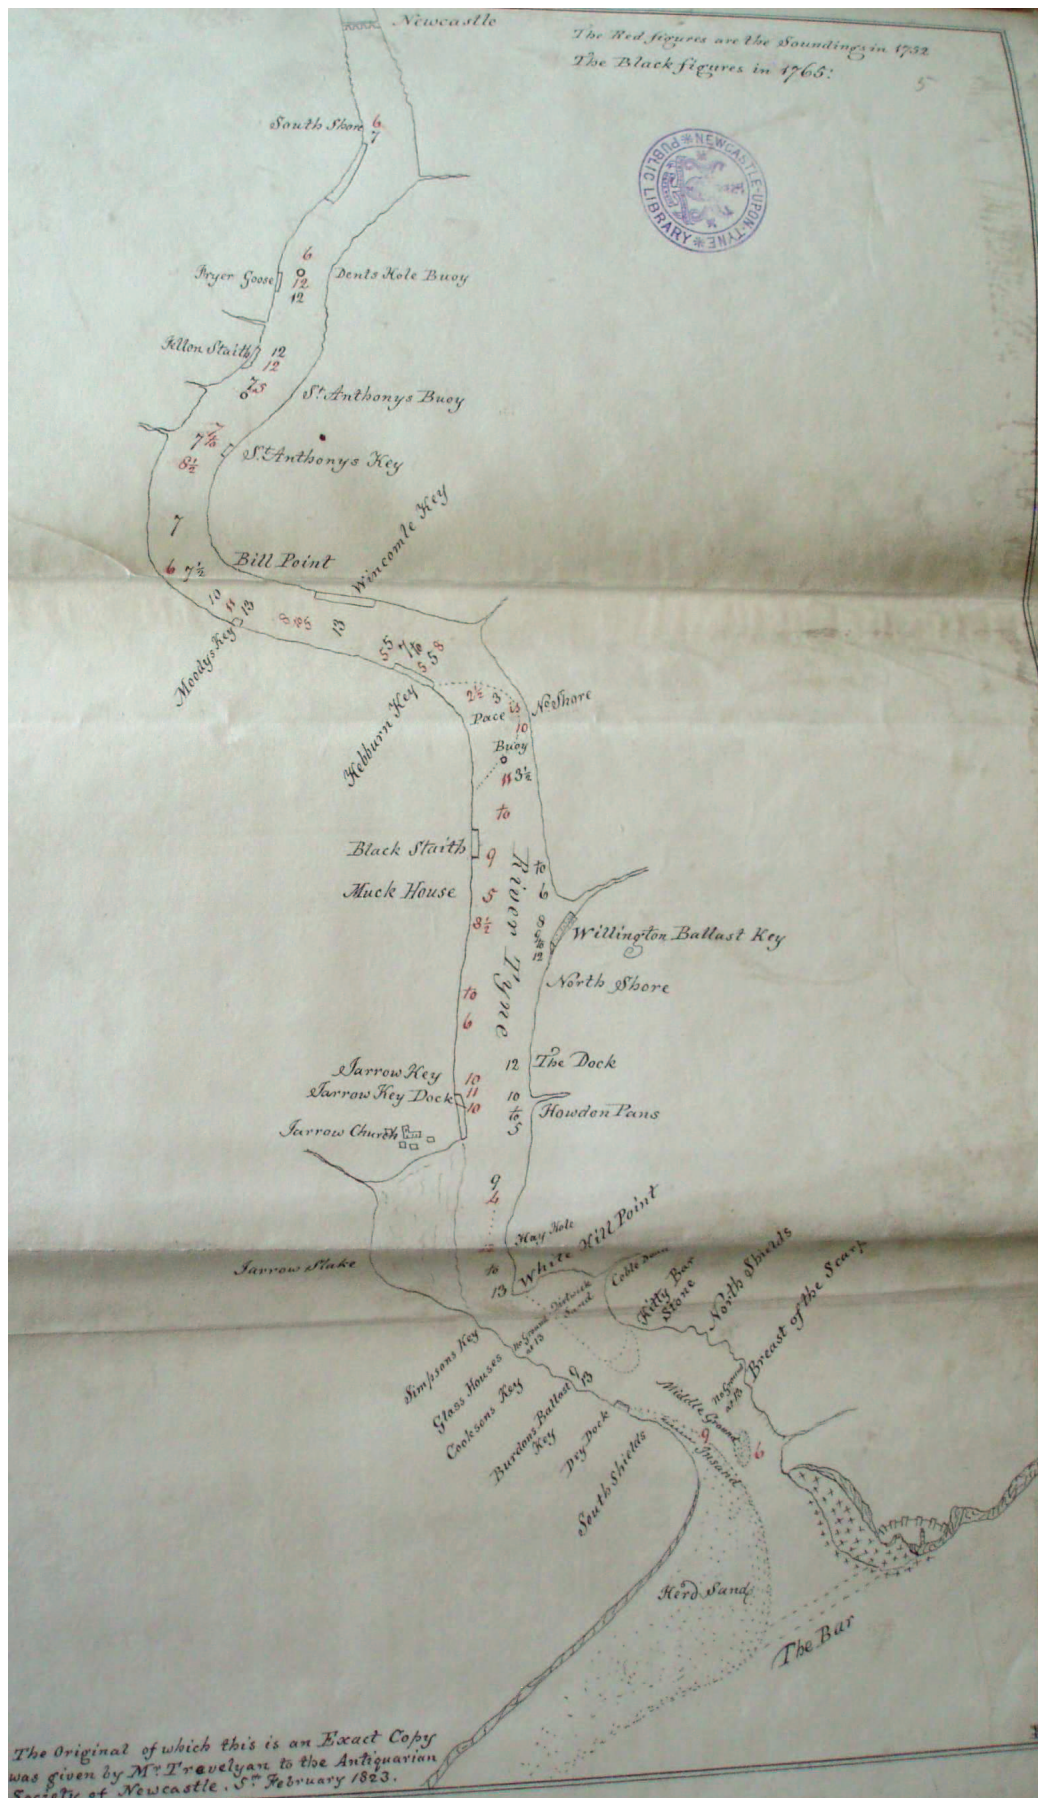 Newcastle
The Red figures are the Soundings in 1752
The Black figures in 1765:
5
NEWCASTLE-UPON-TYNE
PUBLIC LIBRARY
South Shore
6
7
6
Fryer Goose
12
12
Dents Hole Buoy
Fellon Staith
12
12
St. Anthonys Buoy
7
8½
St. Anthonys Key
7
Wincomle Key
Bill Point
6 7½
10
11
13
13
Moodys Key
5 5
5 5 8
Hebburn Key
2½ 3
Pace
10
No Shore
Buoy
11 3½
to
Black Staith
9
to
Muck House
5
6
8½
8
12
River Tyne
Willington Ballast Key
North Shore
to
6
12
The Dock
Jarrow Key
10
Jarrow Key Dock
11
10
10
to
5
Howdon Pans
Jarrow Church
9
4
Hay Hole
White Hill Point
Jarrow Slake
to
13
Kitty Bar
Stone
North Shields
Breast of the Scarp
Simpsons Key
Glass Houses
Cooksons Key
Burdons Ballast
Key
9
13
Dry Dock
South Shields
No Ground
at 13
Middle Ground
No Ground
at 13
9
6
Insand
Herd Sand
The Bar
The Original of which this is an Exact Copy
was given by Mr. Travelyan to the Antiquarian
Society of Newcastle. 5th February 1823.